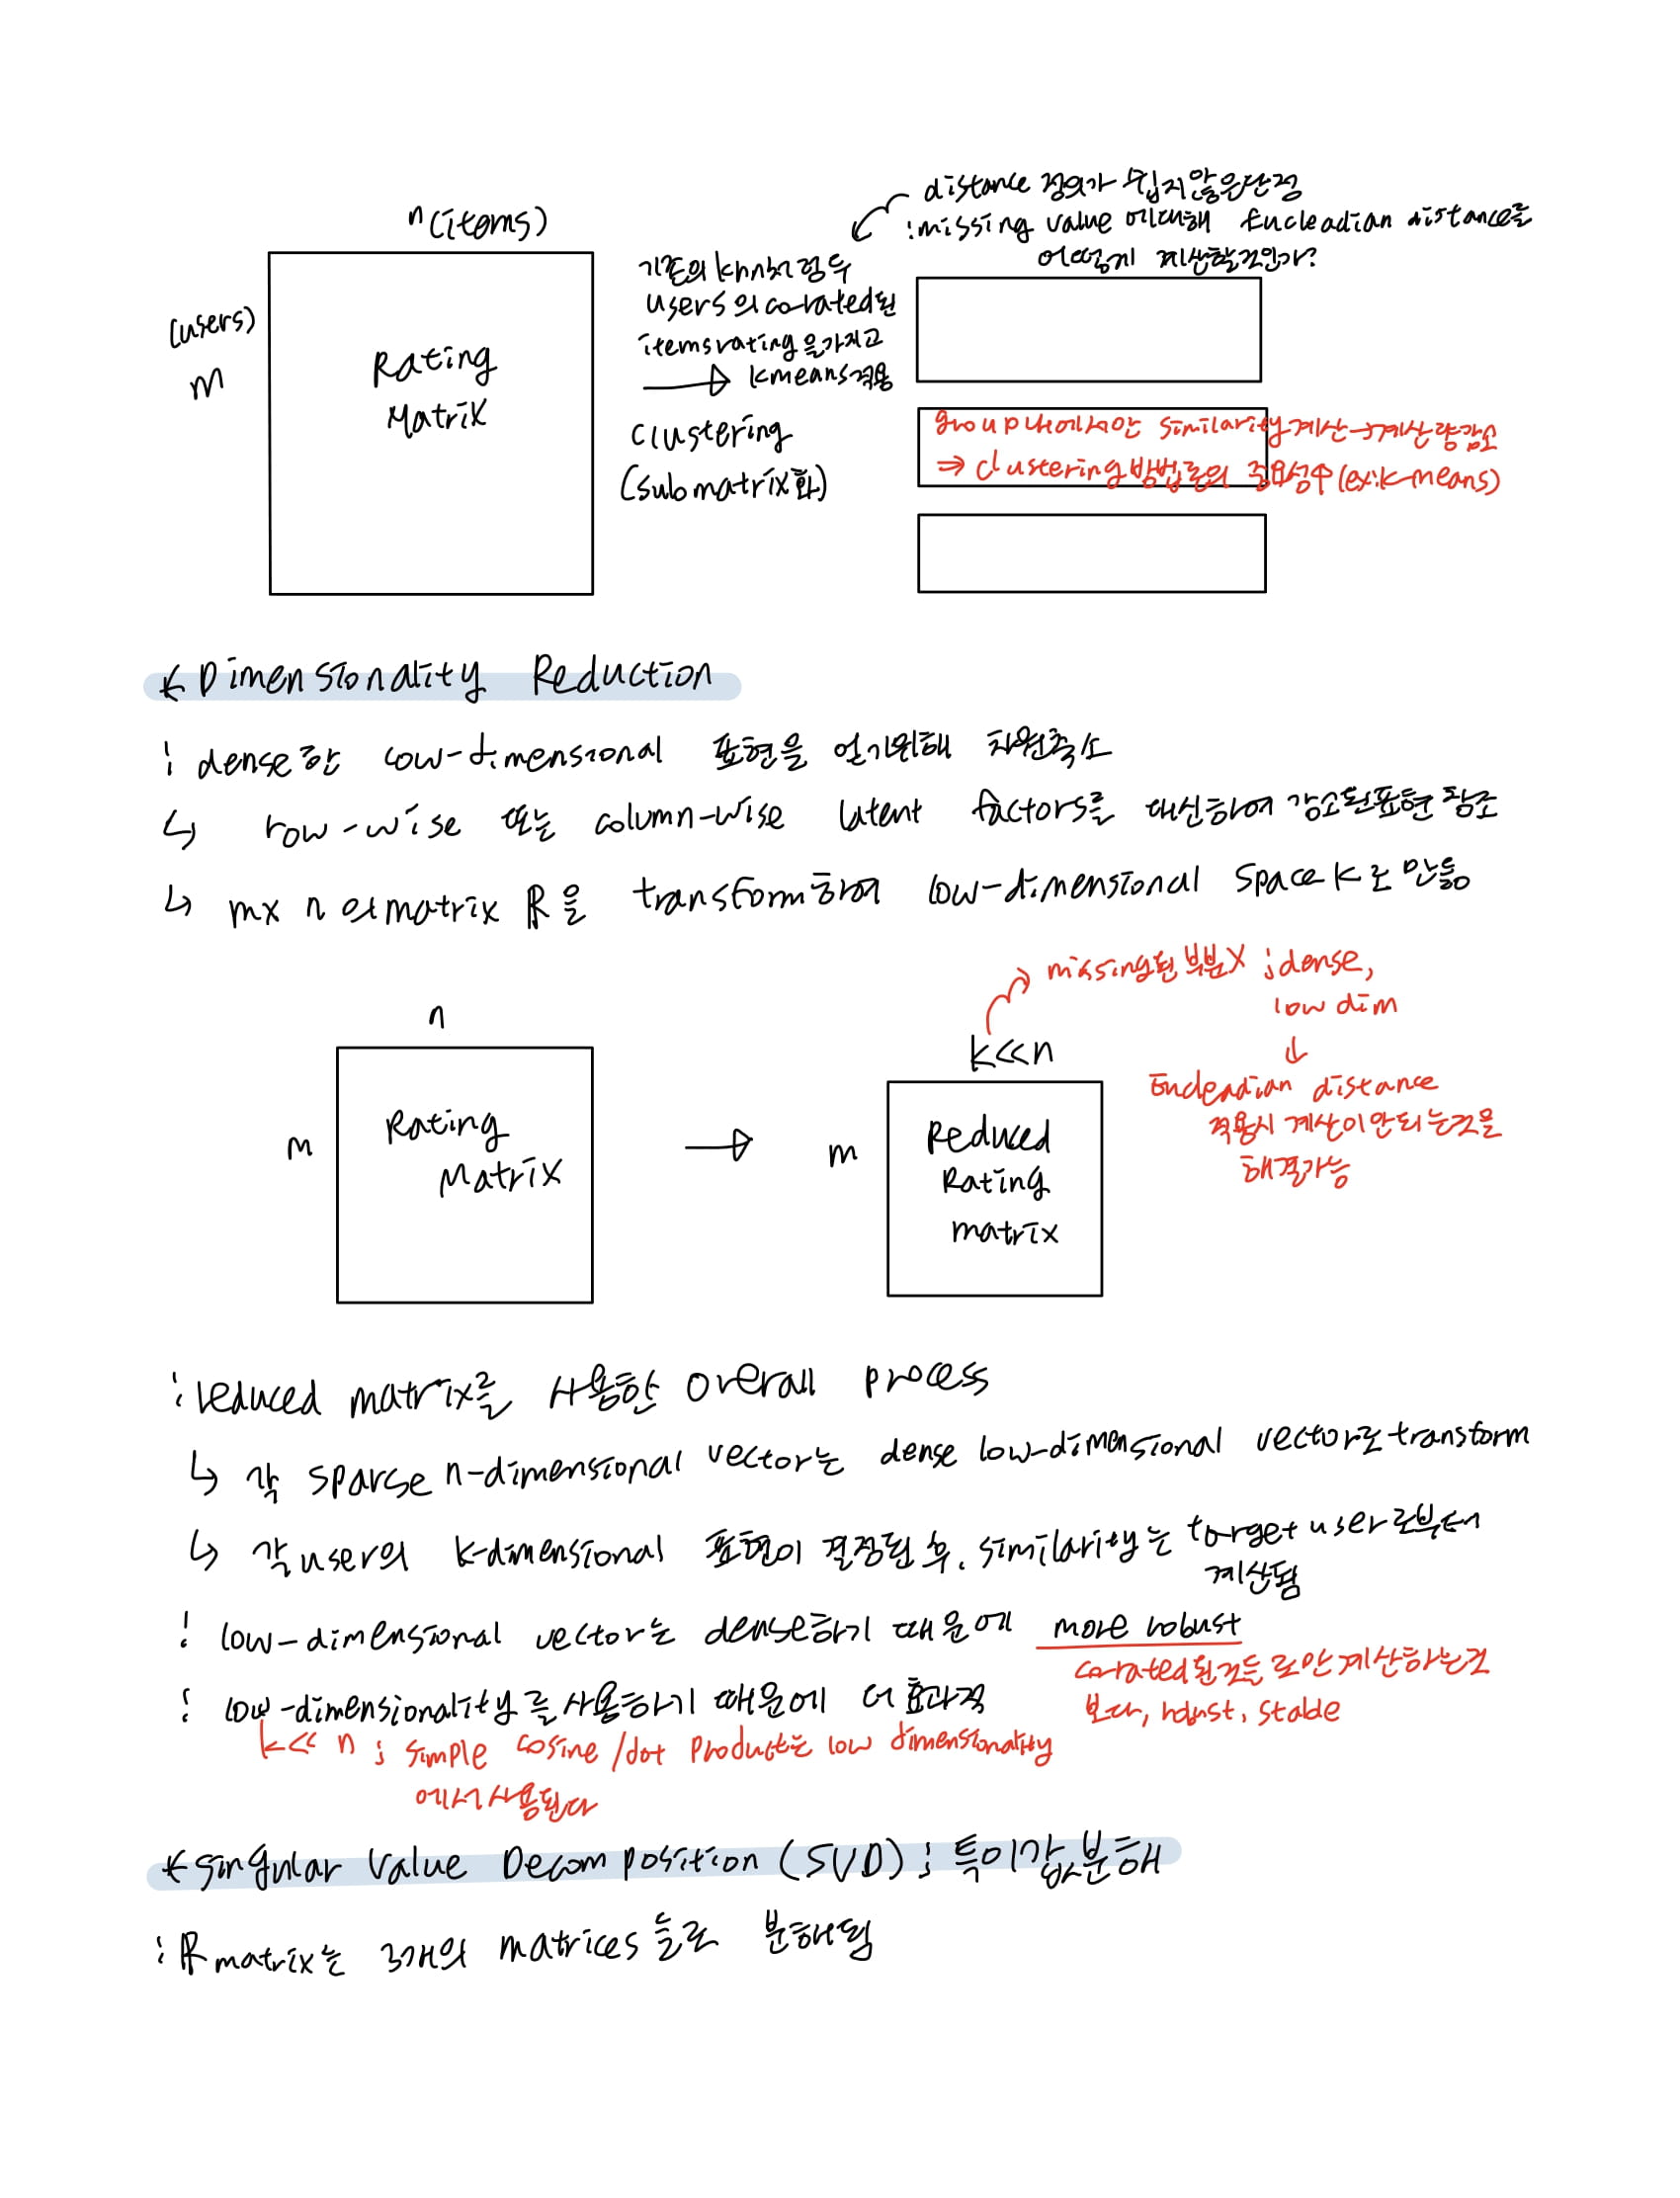 n (items)
(users)
m
Rating
Matrix
기존의 knn처럼 두
users 의 co-rated된
items rating을 가지고
kmeans 적용
clustering
(submatrix화)
distance 정의가 쉽지않은 단점
: missing value 에대해 Eucleadian distance를
어떻게 계산할것인가?
group 내에서만 similarity 계산 → 계산량감소
⇒ clustering 방법론의 중요성↑ (ex: k-means)
* Dimensionality Reduction
: dense한 low-dimensional 표현을 얻기위해 차원축소
↳ row-wise 또는 column-wise latent factors를 대신하여 감소된표현 참조
↳ m x n 의 matrix R을 transform하여 low-dimensional space k로 만듦
n
m
Rating
Matrix
k<<n
m
Reduced
Rating
matrix
missing된 부분X ; dense,
low dim
↓
Eucleadian distance
적용시 계산이 안되는것을
해결가능
: reduced matrix를 사용한 overall process
↳ 각 sparse n-dimensional vector는 dense low-dimensional vector로 transform
↳ 각 user의 k-dimensional 표현이 결정된 후, similarity는 target user로부터
계산됨
: low-dimensional vector는 dense하기 때문에 more robust
co-rated된것들 로만 계산하는것
보다, robust, stable
: low-dimensionality를 사용하기 때문에 더 효과적
k<< n ; simple cosine /dot product는 low dimensionality
에서 사용된다
* Singular Value Decomposition (SVD) ; 특이값분해
: R matrix는 3개의 matrices 들로 분해됨